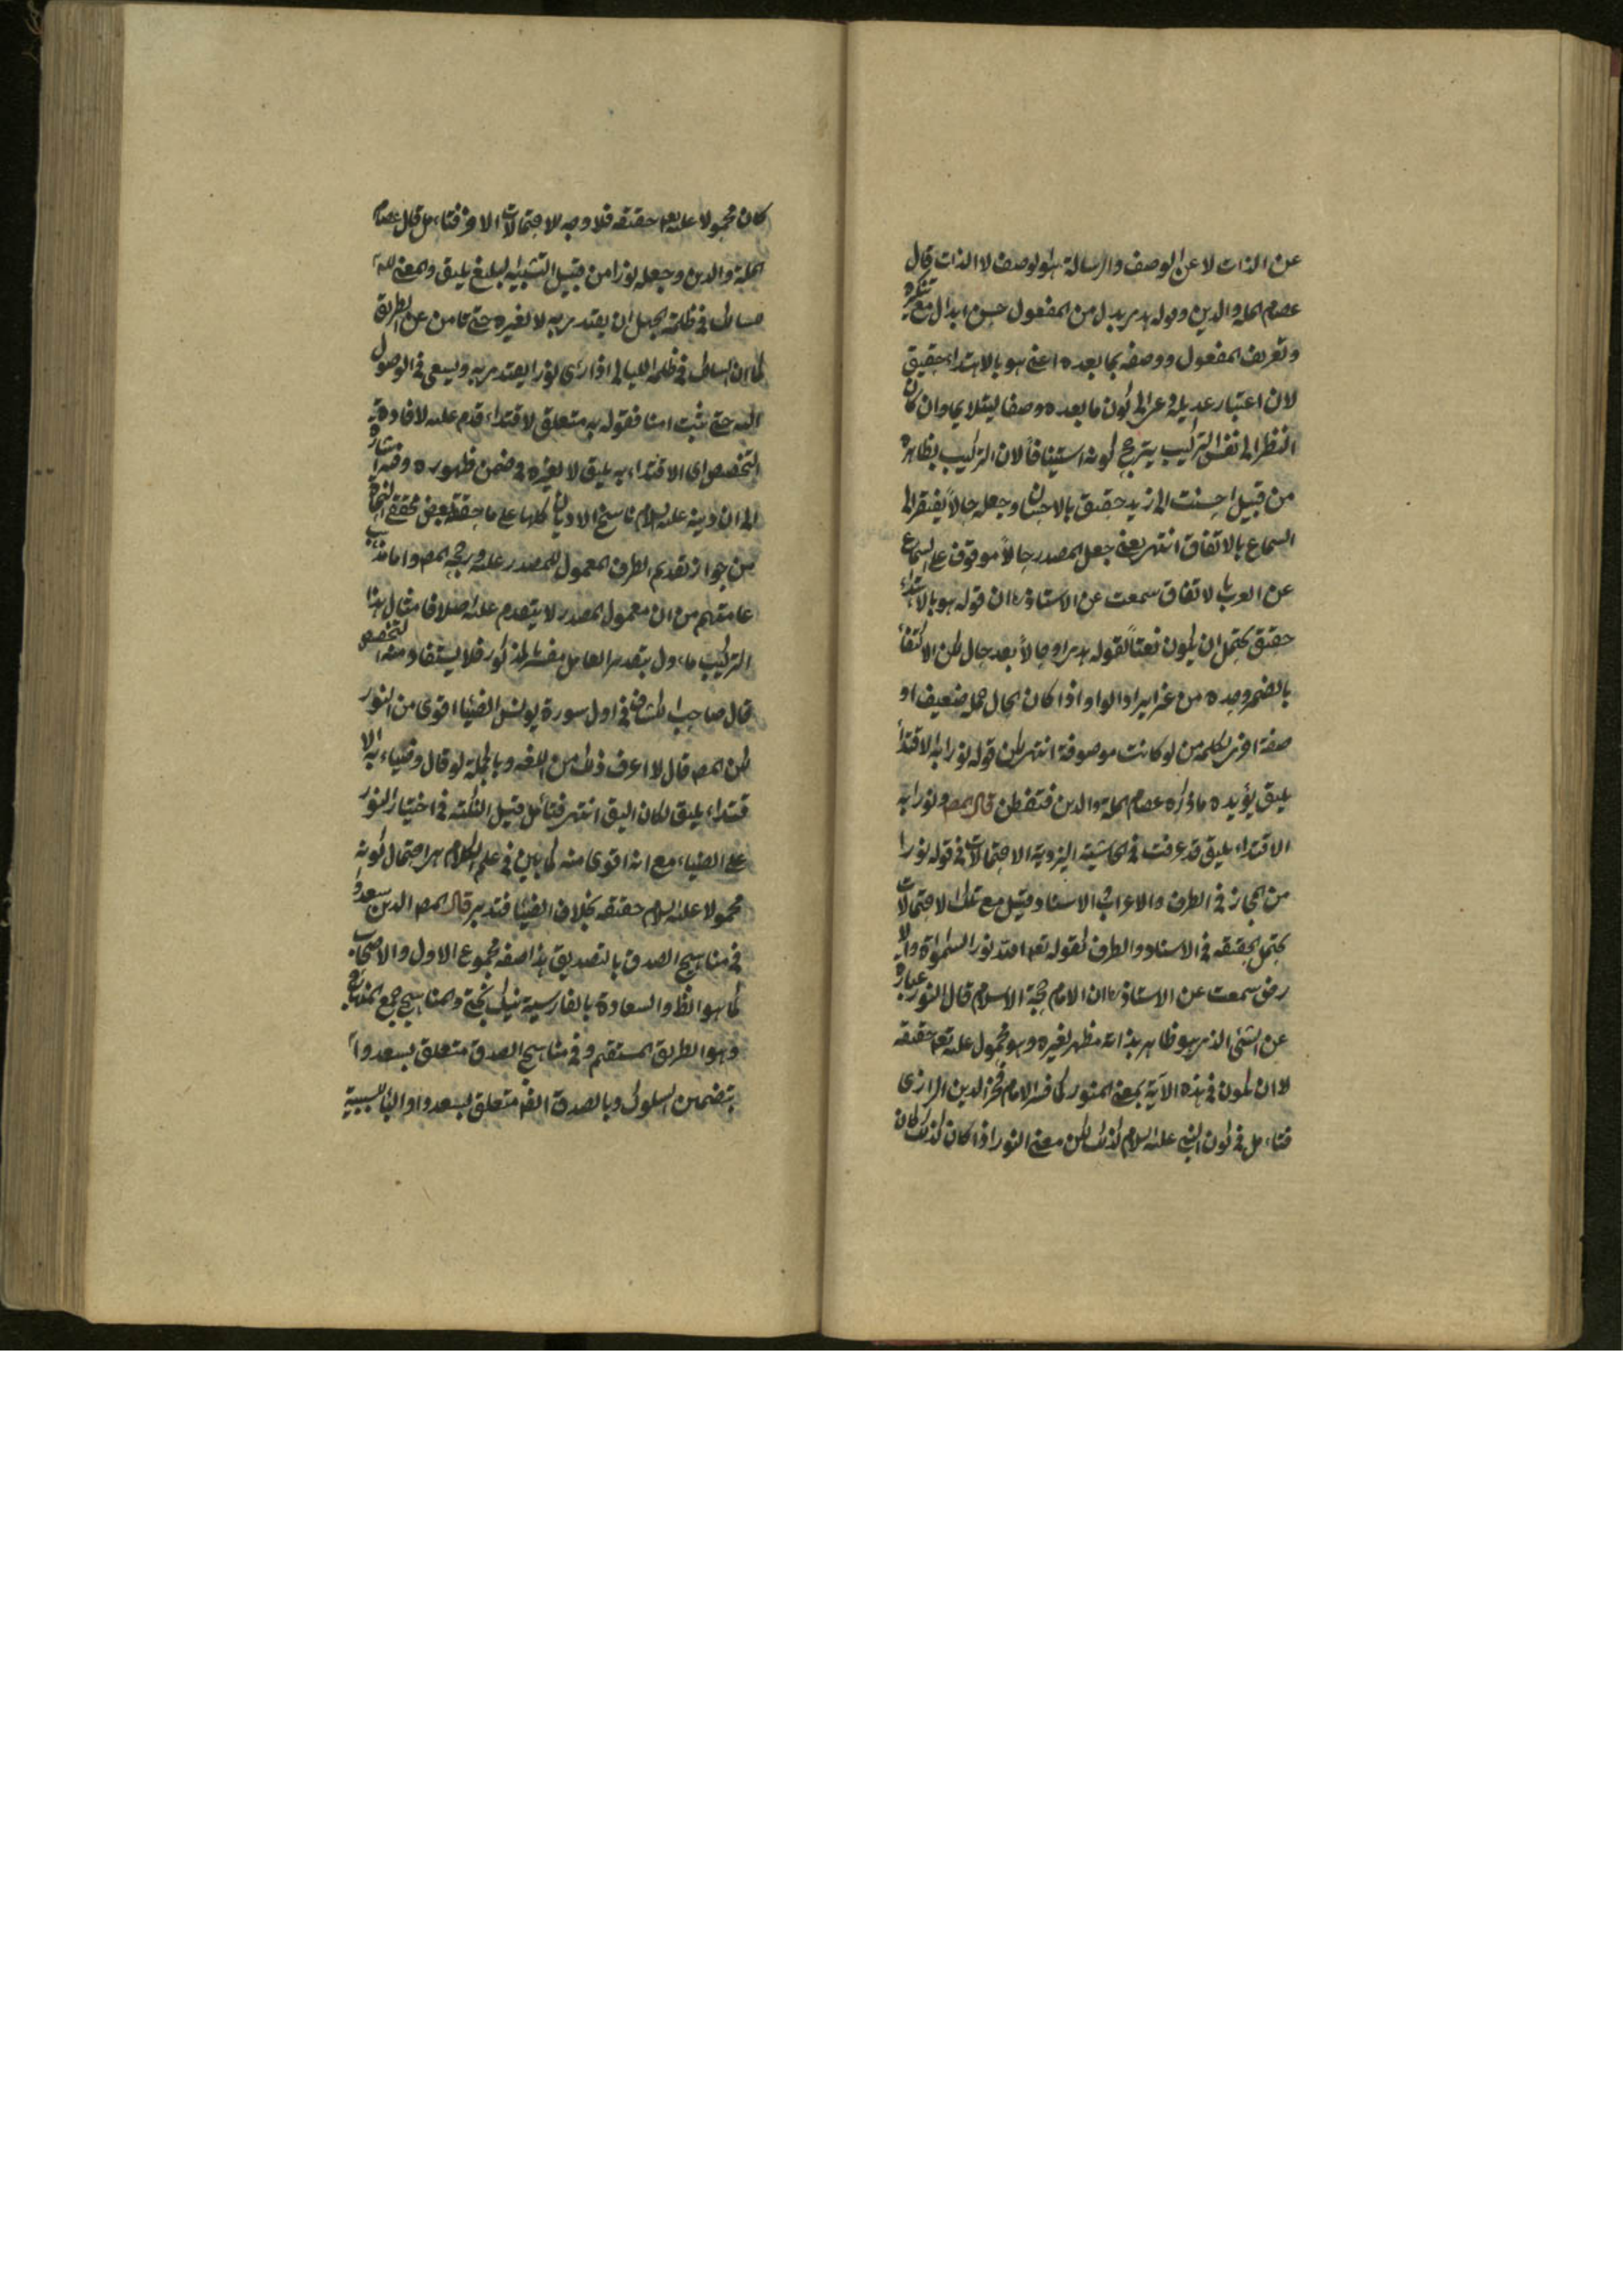 عن الذات لا عن الوصف والرسالة هو الوصف لا الذات قال
عصام الملة والدين وقوله هدى بدل من المفعول حسن ابدال مع تنكيره
وتعريف المفعول ووصفه بما بعده اعنى هو بالاهتداء حقيق
لان اعتبار عديله وعزاى كون ما بعده وصفا ليتلايما وان كان
النظر الى نفس التركيب يترجح كونه استينافا لان التركيب بظاهره
من قبيل احسنت الى زيد حقيق بالاحسان وجعله حالا يفتقر الى
السماع بالاتفاق انتهى يعنى جعل المصدر حالا موقوف على السماع
عن العرب بالاتفاق سمعت عن الاستاذ ان قوله هو بالاهتداء
حقيق يحتمل ان يكون نعتا لقوله هدى او حالا بعد حال لكن الاكتفاء
بالضمير وحده من غير ايراد الواو اذا كان الحال جملة ضعيف او
صفة اخرى لكلمة من لو كانت موصوفة انتهى لكن قوله نورا به الاقتداء
يليق يؤيده ما ذكره عصام الملة والدين فتفطن قال المص ونورا به
الاقتداء يليق قد عرفت فى الحاشية اليزدية الاحتمالات فى قوله نورا
من المجاز فى الطرف والاعراب الاسناد وقيل مع تلك الاحتمالات
يحتمل الحقيقة فى الاسناد والطرف كقوله تعالى الله نور السموات والا
رض سمعت عن الاستاذ ان الامام حجة الاسلام قال النور عبارة
عن الشئ الذى هو ظاهر بذاته مظهر لغيره وهو محمول عليه تعالى حقيقة
لا ان يكون فى هذه الآية بمعنى المنور كما فسره الامام فخر الدين الرازى
فتاءمل فى كون النبى عليه السلام كذلك لكن معنى النور اذا كان كذلك كان
كان محمولا عليه تعالى حقيقة فلا وجه للاحتمالات الاخر فتاءمل قال عصام
الملة والدين وجعله نورا من قبيل التشبيه البليغ يليق والمعنى لله
سالك فى ظلمة الجهل ان يقتدى به لا لغيره حتى تامن عن الطريق
كما ان السالك فى ظلمة الليالى اذا رأى نورا يقتدى به ويسعى فى الوصول
اليه حتى يثبت امنا فقوله به متعلق لاقتداء قدم عليه لافادة
التخصيص اى الاقتداء به يليق لا بغيره فى ضمن ظهوره وفيه اشارة
الى ان دينه عليه السلام ناسخ الاديان كلها على ما حققه بعض محققى النحاة
من جواز تقديم الظرف المعمول للمصدر عليه ورجحه المص واما مذهب
عامتهم من ان معمول المصدر لا يتقدم عليه اصلا فامثال هذا
التركيب ماءول بتقدير العامل يفسره المذكور فلا يستفاد منه التخصيص
قال صاحب الكشاف فى اول سورة يونس الضياء اقوى من النور
لكن المص قال لا اعرف ذلك من اللغة وبالجملة لو قال وضياء به الا
قتداء يليق لكان اليق انتهى فتأمل قيل النكتة فى اختيار النور
على الضياء مع انه اقوى منه كما بين فى علم الكلام هى احتمال كونه
محمولا عليه السلام حقيقة بخلاف الضياء فتدبر قال المص الدين سعدوا
فى مناهج الصدق بالتصديق هذا صفة مجموع الاول والاصحاب
كما هو الظ والسعادة بالفارسية نيك بختى والمناهج جمع المنهاج
وهو الطريق المستقيم وفى مناهج الصدق متعلق بسعدوا
بتضمين السلوك وبالصدق ايضا متعلق بسعدوا والباء للسببية